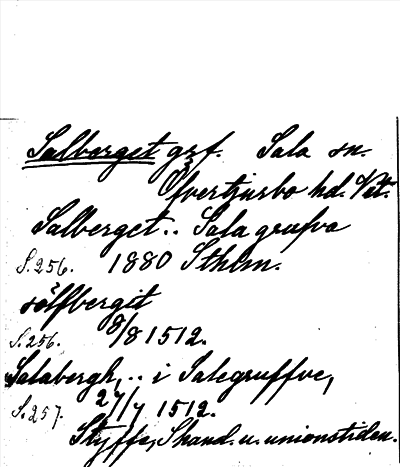 Salberget grf. Sala sn.
Öfvertjurbo hd. Vstm.
Salberget.. Sala grufva
S. 256. 1880 Sthlm.
sölfbergit
S. 256. 8/8 1512.
Salabergh, .. i Salegruffve,
S. 257. 27/7 1512.
Styffe, Skand. u. unionstiden.